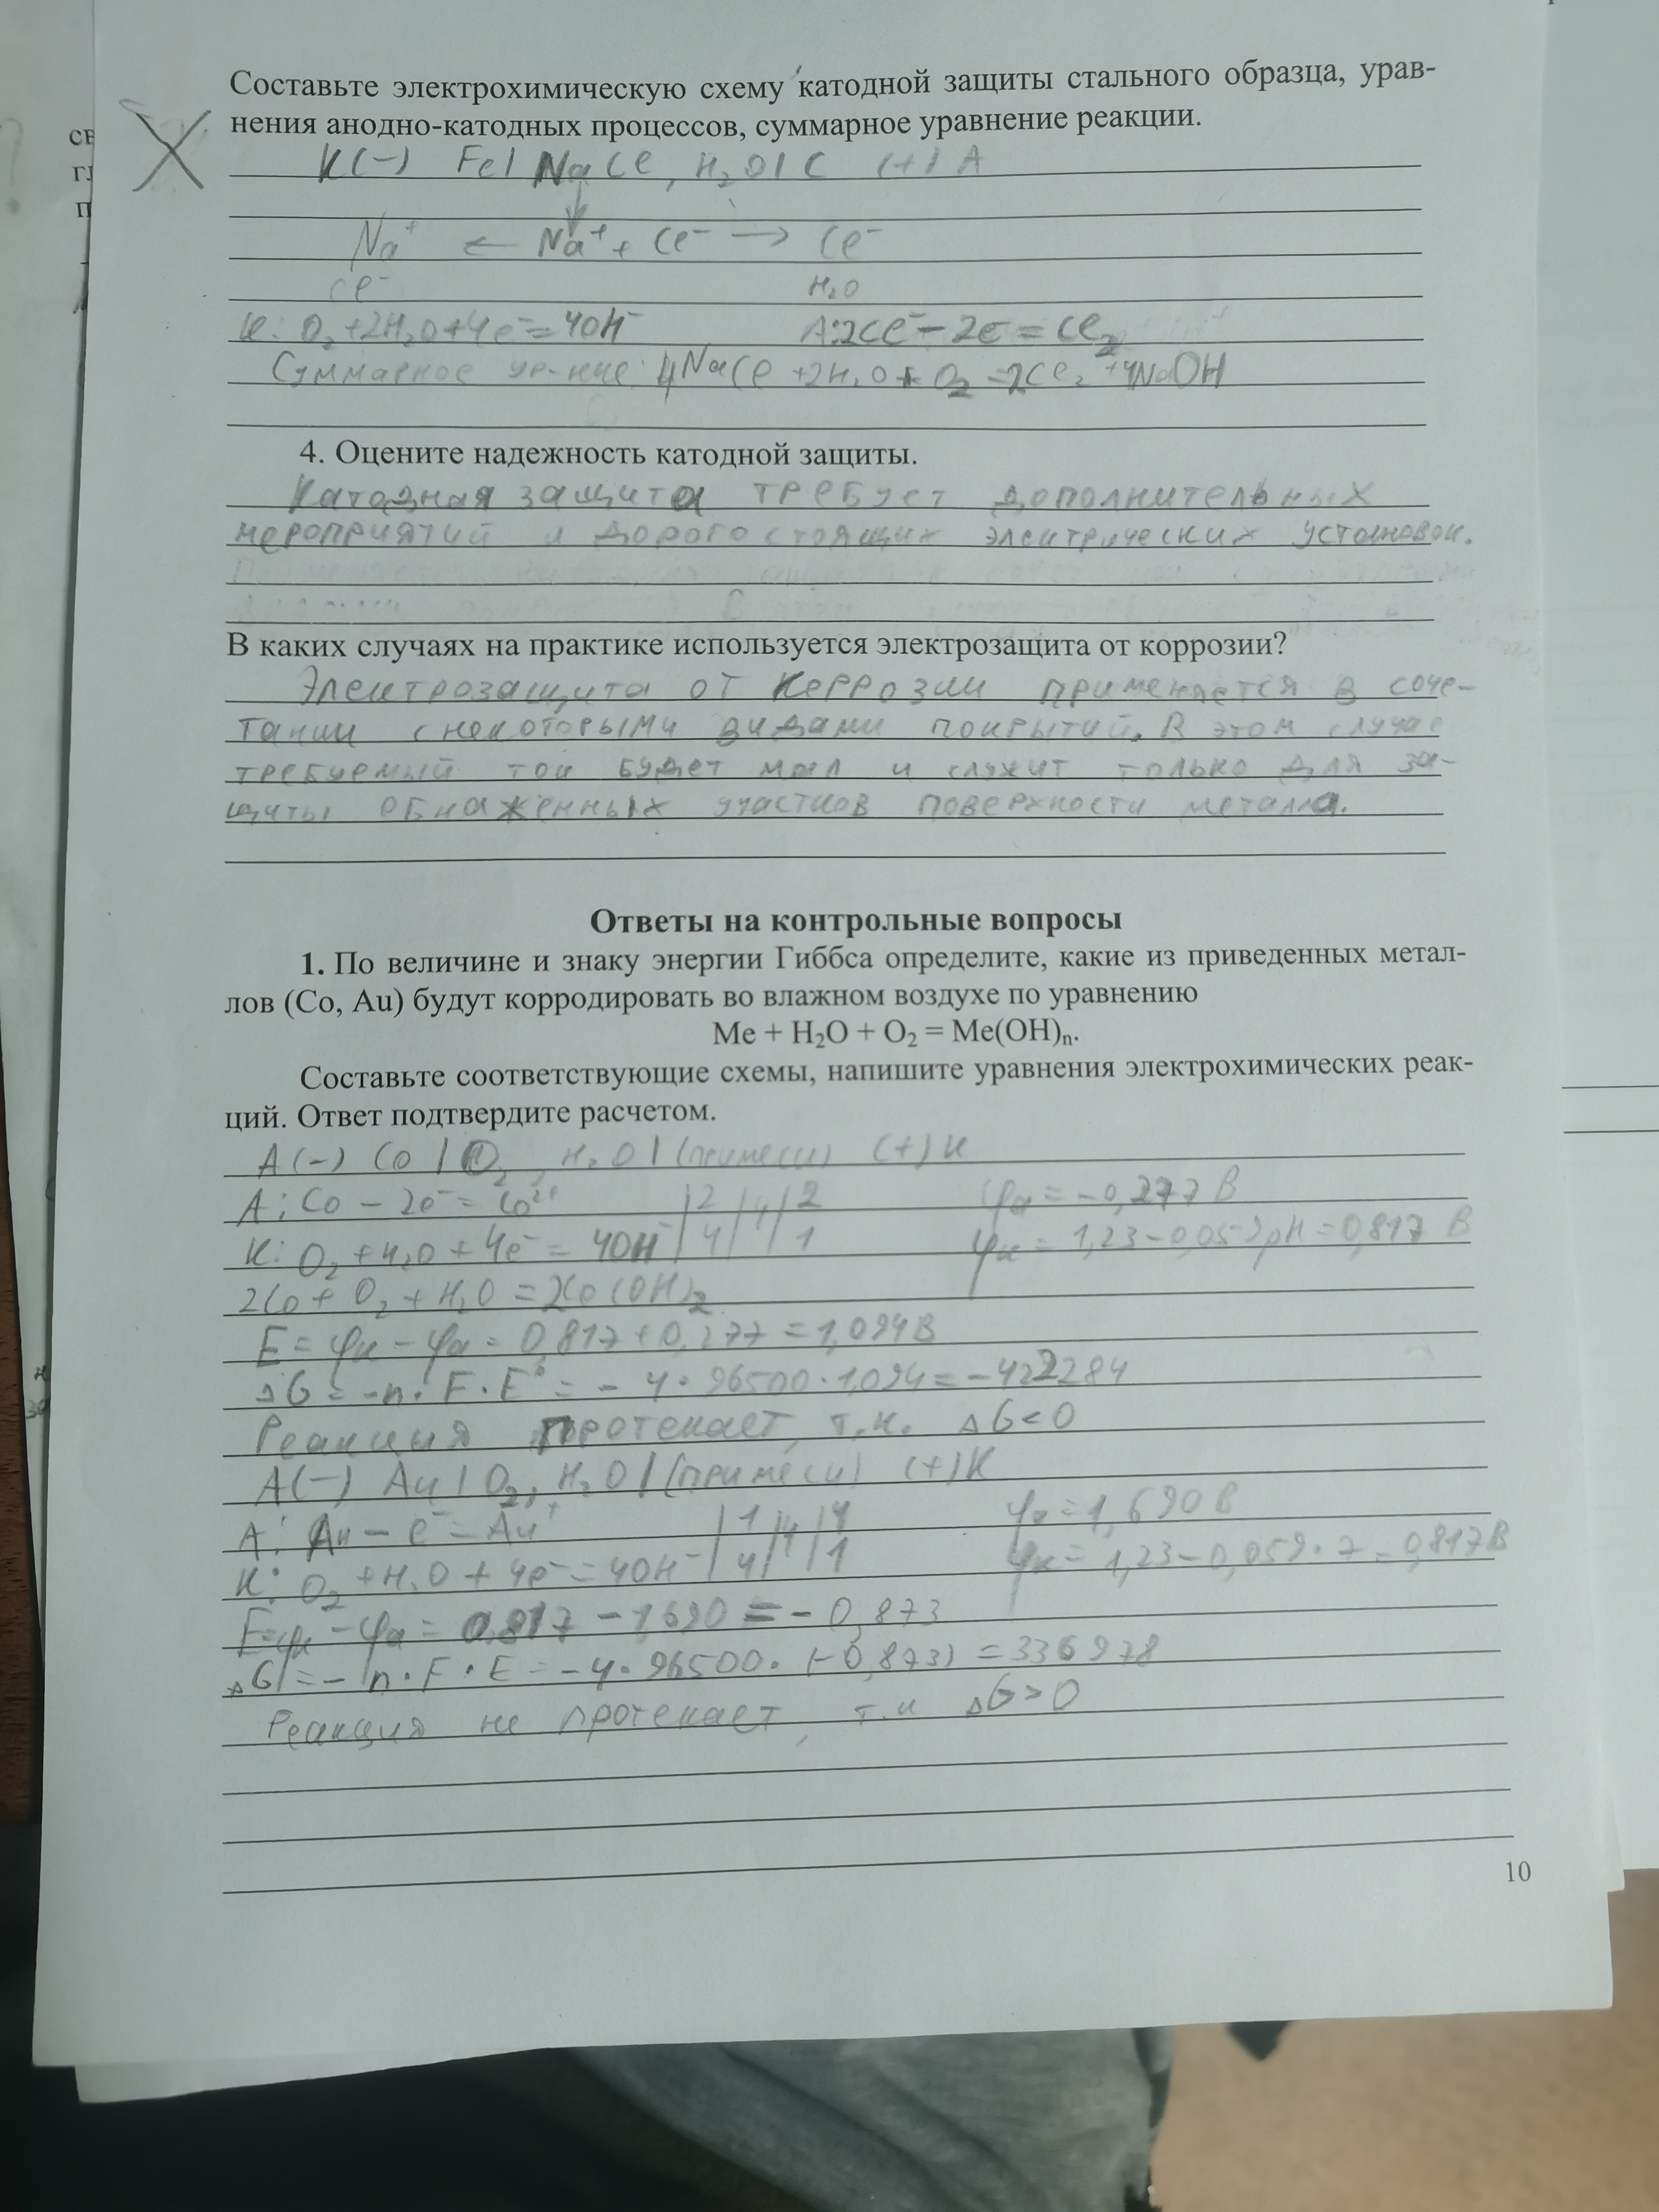 Составьте электрохимическую схему катодной защиты стального образца, урав-
нения анодно-катодных процессов, суммарное уравнение реакции.
К(-) Fe | NaCl, H₂O | C (+) А
Na⁺ ← Na⁺ + Cl⁻ → Cl⁻
Cl⁻ H₂O
К: O₂ + 2H₂O + 4e⁻ = 4OH⁻ А: 2Cl⁻ - 2e = Cl₂
Суммарное ур-ние: 4NaCl + 2H₂O + O₂ = 2Cl₂ + 4NaOH
4. Оцените надежность катодной защиты.
Катодная защита требует дополнительных
мероприятий и дорогостоящих электрических установок.
В каких случаях на практике используется электрозащита от коррозии?
Электрозащита от керрозии применяется в соче-
тании с некоторыми видами покрытий. В этом случае
требуемый ток будет мал и служит только для за-
щиты обнаженных участков поверхности металла.
Ответы на контрольные вопросы
1. По величине и знаку энергии Гиббса определите, какие из приведенных метал-
лов (Co, Au) будут корродировать во влажном воздухе по уравнению
Me + H₂O + O₂ = Me(OH)ₙ.
Составьте соответствующие схемы, напишите уравнения электрохимических реак-
ций. Ответ подтвердите расчетом.
А(-) Co | O₂, H₂O | (примеси) (+) К
А: Co - 2e⁻ = Co²⁺ | 2 | 4 | 2 φa = -0,277 В
К: O₂ + H₂O + 4e⁻ = 4OH⁻ | 4 | | 1 φк = 1,23 - 0,059pH = 0,817 В
2Co + O₂ + H₂O = 2Co(OH)₂
E = φк - φa = 0,817 + 0,277 = 1,094 В
ΔG = -n · F · E = - 4 · 96500 · 1,094 = -422284
Реакция протекает, т.к. ΔG < 0
А(-) Au | O₂, H₂O | (примеси) (+) К
А: Au - e⁻ = Au⁺ | 1 | 4 | 4 φa = 1,690 В
К: O₂ + H₂O + 4e⁻ = 4OH⁻ | 4 | | 1 φк = 1,23 - 0,059 · 7 = 0,817 В
E = φк - φa = 0,817 - 1,690 = - 0,873
ΔG = - n · F · E = -4 · 96500 · (-0,873) = 336978
Реакция не протекает, т.к ΔG > 0
10